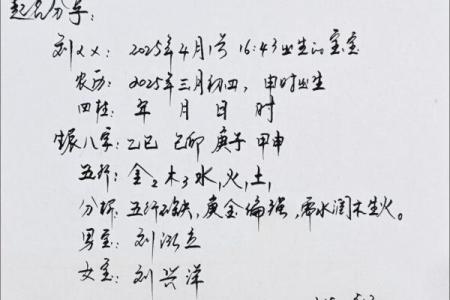 起名分享:
刘xx: 2025年4月1号 16:43出生的宝宝
农历: 2025年三月初四, 申时出生
四柱: 年 月 日 时
生辰八字: 乙巳 己卯 庚子 甲申
五行: 金2木3水1火1土1
分析: 五行不缺, 庚金偏强, 需水润木生火。
男宝: 刘泓立
女宝: 刘兴洋